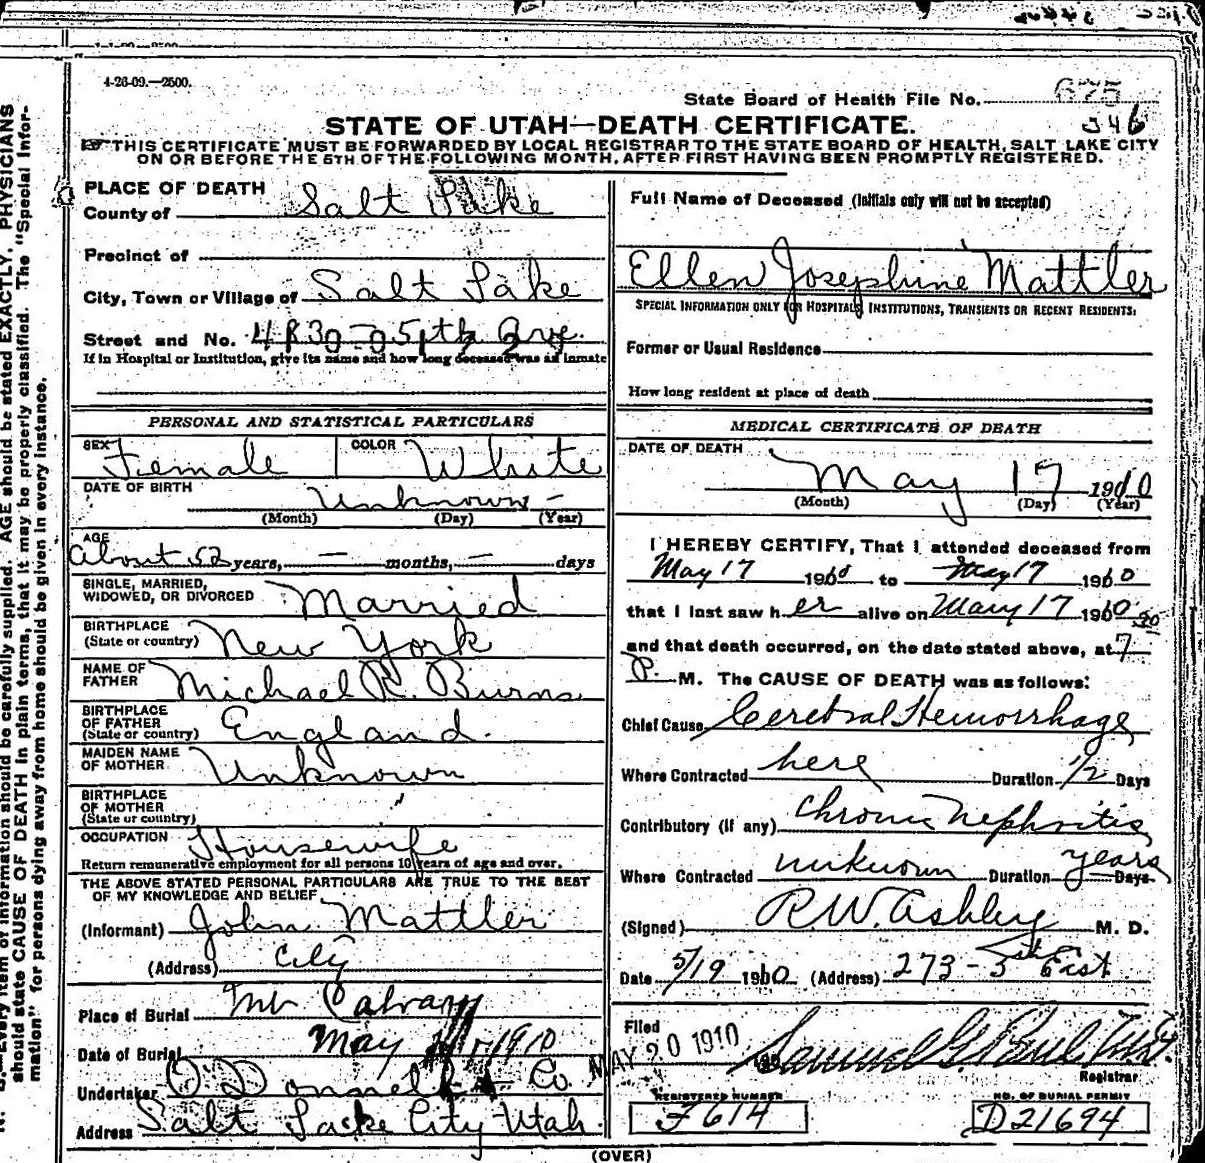 4-26-09.—2500.
State Board of Health File No. 675
346
STATE OF UTAH—DEATH CERTIFICATE.
THIS CERTIFICATE MUST BE FORWARDED BY LOCAL REGISTRAR TO THE STATE BOARD OF HEALTH, SALT LAKE CITY
ON OR BEFORE THE 5TH OF THE FOLLOWING MONTH, AFTER FIRST HAVING BEEN PROMPTLY REGISTERED.
PLACE OF DEATH
County of Salt Lake
Precinct of
City, Town or Village of Salt Lake
Street and No.
If in Hospital or Institution, give its name and how long deceased was an inmate
PERSONAL AND STATISTICAL PARTICULARS
SEX Female COLOR White
DATE OF BIRTH Unknown —
(Month) (Day) (Year)
AGE
About 52 years, — months, — days
SINGLE, MARRIED,
WIDOWED, OR DIVORCED Married
BIRTHPLACE
(State or country) New York
NAME OF
FATHER Michael R. Burns
BIRTHPLACE
OF FATHER
(State or country) England.
MAIDEN NAME
OF MOTHER Unknown
BIRTHPLACE
OF MOTHER
(State or country) "
OCCUPATION Housewife
Return remunerative employment for all persons 10 years of age and over.
THE ABOVE STATED PERSONAL PARTICULARS ARE TRUE TO THE BEST
OF MY KNOWLEDGE AND BELIEF
(Informant) John Mattler
(Address) City
Place of Burial Mt Calvary
Date of Burial May 1910
Undertaker O'Donnell & Co.
Address Salt Lake City Utah.
Full Name of Deceased (Initials only will not be accepted)
Ellen Josephine Mattler
SPECIAL INFORMATION ONLY FOR HOSPITALS, INSTITUTIONS, TRANSIENTS OR RECENT RESIDENTS:
Former or Usual Residence
How long resident at place of death
MEDICAL CERTIFICATE OF DEATH
DATE OF DEATH
May 17 1910
(Month) (Day) (Year)
I HEREBY CERTIFY, That I attended deceased from
May 17 1910 to May 17 1910
that I last saw her alive on May 17 1910
and that death occurred, on the date stated above, at 7 30
P. M. The CAUSE OF DEATH was as follows:
Chief Cause Cerebral Hemorrhage
Where Contracted here Duration 1/2 Days
Contributory (if any) Chronic Nephritis
Where Contracted unknown Duration years Days
(Signed) R.W. Ashley M. D.
Date 5/19 1910 (Address) 273 - 5th East
Filed MAY 20 1910 190
Registrar
REGISTERED NUMBER
F 614
NO. OF BURIAL PERMIT
D21694
(OVER)
N. B.—Every item of information should be carefully supplied. AGE should be stated EXACTLY. PHYSICIANS
should state CAUSE OF DEATH in plain terms, that it may be properly classified. The "Special Infor-
mation" for persons dying away from home should be given in every instance.